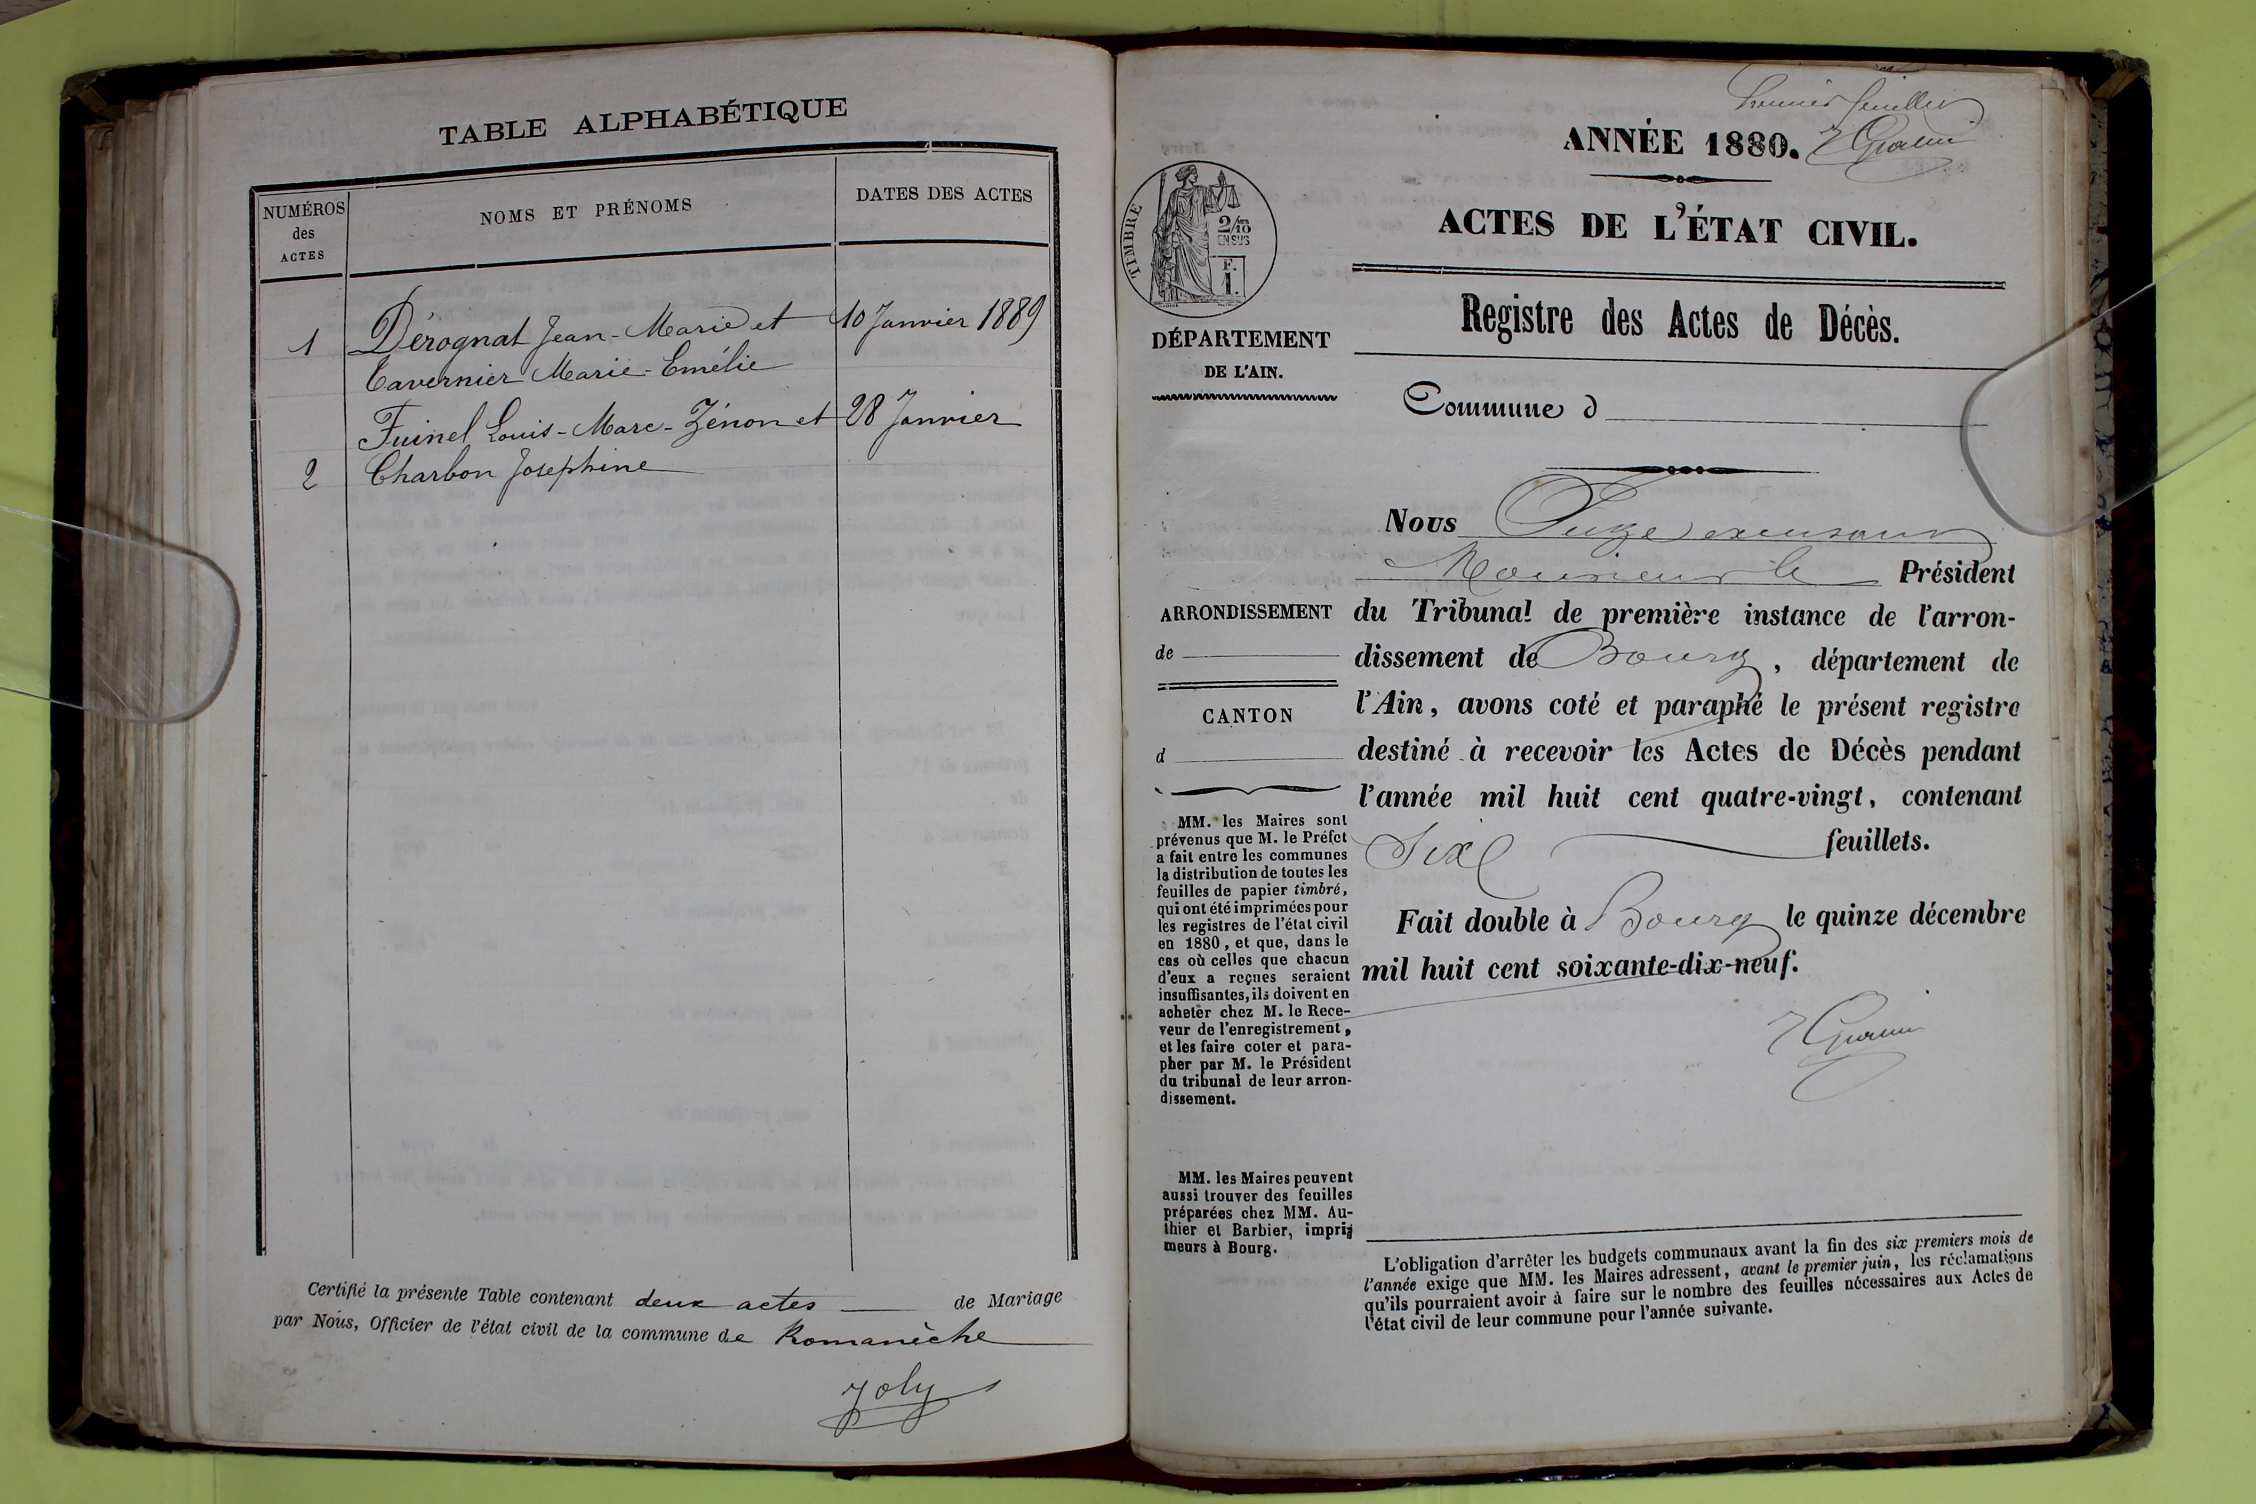 TABLE ALPHABÉTIQUE
NUMÉROS des ACTES
NOMS ET PRÉNOMS
DATES DES ACTES
1 Dérognat Jean-Marie et 10 Janvier 1889
Tavernier Marie-Emélie
Fuinel Louis-Marc-Zénon et 28 Janvier
2 Charbon Josephine
Certifié la présente Table contenant deux actes de Mariage
par Nous, Officier de l'état civil de la commune de Romanèche
Joly
Premier feuillet
ANNÉE 1880.
TIMBRE
2/10 EN SUS
F. 1.
ACTES DE L'ÉTAT CIVIL.
Registre des Actes de Décès.
DÉPARTEMENT
DE L'AIN.
Commune d
ARRONDISSEMENT
de
CANTON
d
MM. les Maires sont
prévenus que M. le Préfet
a fait entre les communes
la distribution de toutes les
feuilles de papier timbré,
qui ont été imprimées pour
les registres de l'état civil
en 1880, et que, dans le
cas où celles que chacun
d'eux a reçues seraient
insuffisantes, ils doivent en
acheter chez M. le Rece-
veur de l'enregistrement,
et les faire coter et para-
pher par M. le Président
du tribunal de leur arron-
dissement.
MM. les Maires peuvent
aussi trouver des feuilles
préparées chez MM. Au-
thier et Barbier, impri-
meurs à Bourg.
Nous Juge
Monsieur le Président
du Tribunal de première instance de l'arron-
dissement de Bourg, département de
l'Ain, avons coté et paraphé le présent registre
destiné à recevoir les Actes de Décès pendant
l'année mil huit cent quatre-vingt, contenant
Six feuillets.
Fait double à Bourg le quinze décembre
mil huit cent soixante-dix-neuf.
L'obligation d'arrêter les budgets communaux avant la fin des six premiers mois de
l'année exige que MM. les Maires adressent, avant le premier juin, les réclamations
qu'ils pourraient avoir à faire sur le nombre des feuilles nécessaires aux Actes de
l'état civil de leur commune pour l'année suivante.